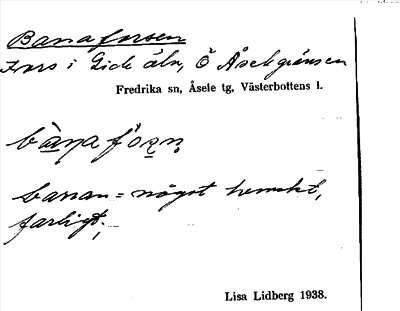 Banaforsen
Fors i Gide älv, Ö Åselegränsen
Fredrika sn, Åsele tg, Västerbottens l.
banan = något hemskt,
farligt.
Lisa Lidberg 1938.